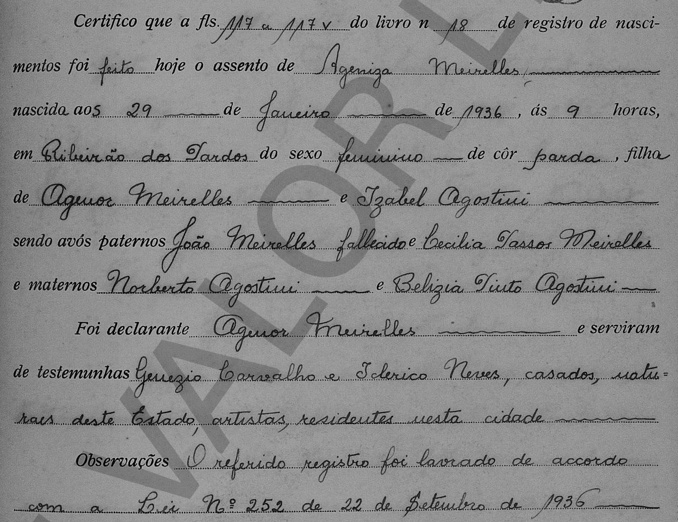 Certifico que a fls. 117 a 117 v do livro n 18 de registro de nasci-
mentos foi feito hoje o assento de Ageniza Meirelles,
nascida aos 29 de Janeiro de 1936, ás 9 horas,
em Ribeirão dos Pardos do sexo feminino de côr parda, filha
de Agenor Meirelles e Izabel Agostini
sendo avós paternos João Meirelles fallecido e Cecilia Passos Meirelles
e maternos Norberto Agostini e Belizia Pinto Agostini
Foi declarante Agenor Meirelles e serviram
de testemunhas Genezio Carvalho e Neves, casados, natu=
raes deste Estado, artistas, residentes nesta cidade
Observações O referido registro foi lavrado de accordo
com a Lei Nº 252 de 22 de Setembro de 1936
VALOR